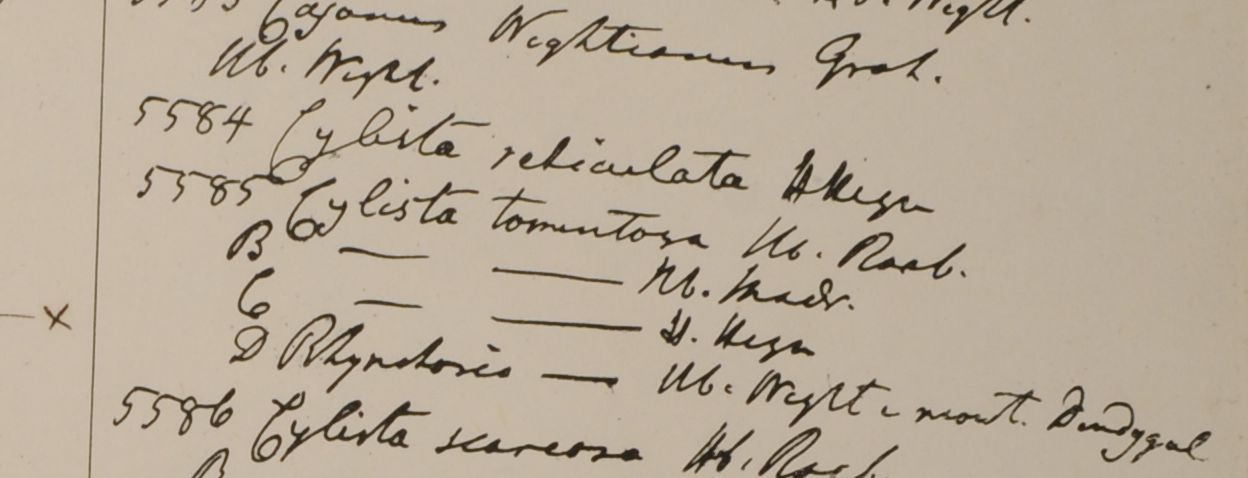 Cajanus Wightianus Grah.
Hb. Wight.
5584 Cylista reticulata H Heyn
5585 Cylista tomentosa Hb. Roxb.
B — — Hb. Madr.
C — — H. Heyn
D Rhynchosia — Hb. Wight e mont. Dindygul
5586 Cylista scareosa Hb. Roxb.
B